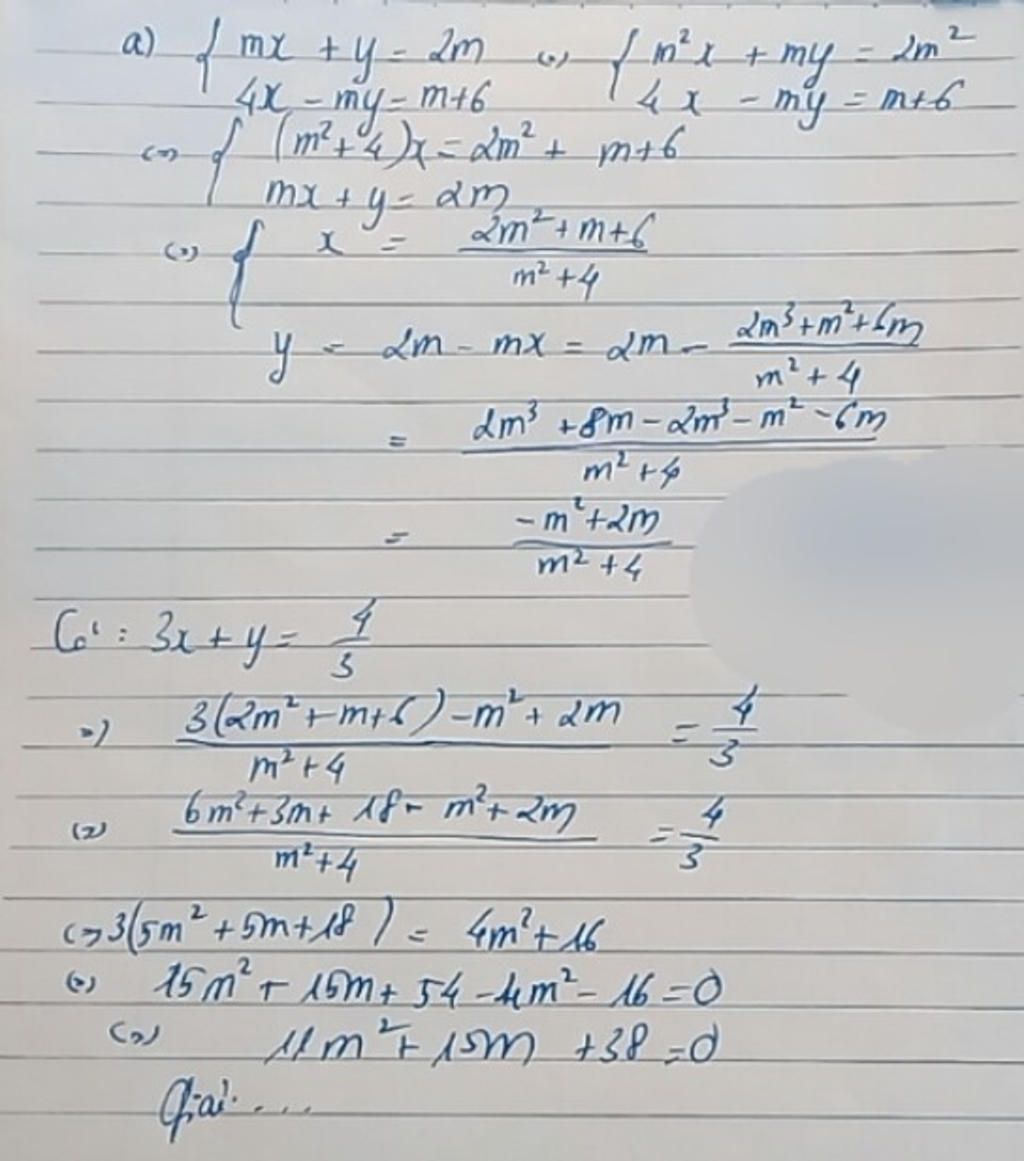 a) { mx + y = 2m <=> { m²x + my = 2m²
4x - my = m+6 4x - my = m+6
<=> { (m²+4)x = 2m² + m+6
mx + y = 2m
<=> { x = (2m²+m+6)/(m²+4)
y = 2m - mx = 2m - (2m³+m²+6m)/(m²+4)
= (2m³+8m-2m³-m²-6m)/(m²+4)
= (-m²+2m)/(m²+4)
Có : 3x + y = 4/3
=> (3(2m²+m+6)-m²+2m)/(m²+4) = 4/3
<=> (6m²+3m+18-m²+2m)/(m²+4) = 4/3
<=> 3(5m²+5m+18) = 4m²+16
<=> 15m²+15m+54-4m²-16=0
<=> 11m²+15m+38=0
Giải....